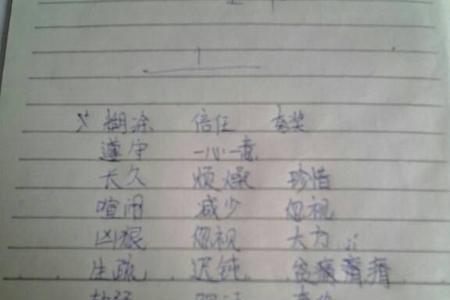 糊涂 信任 夸奖
遵守 一心一意
长久 烦燥 珍惜
喧闹 减少 忽视
凶狠 忽视 大方
生疏 迟钝